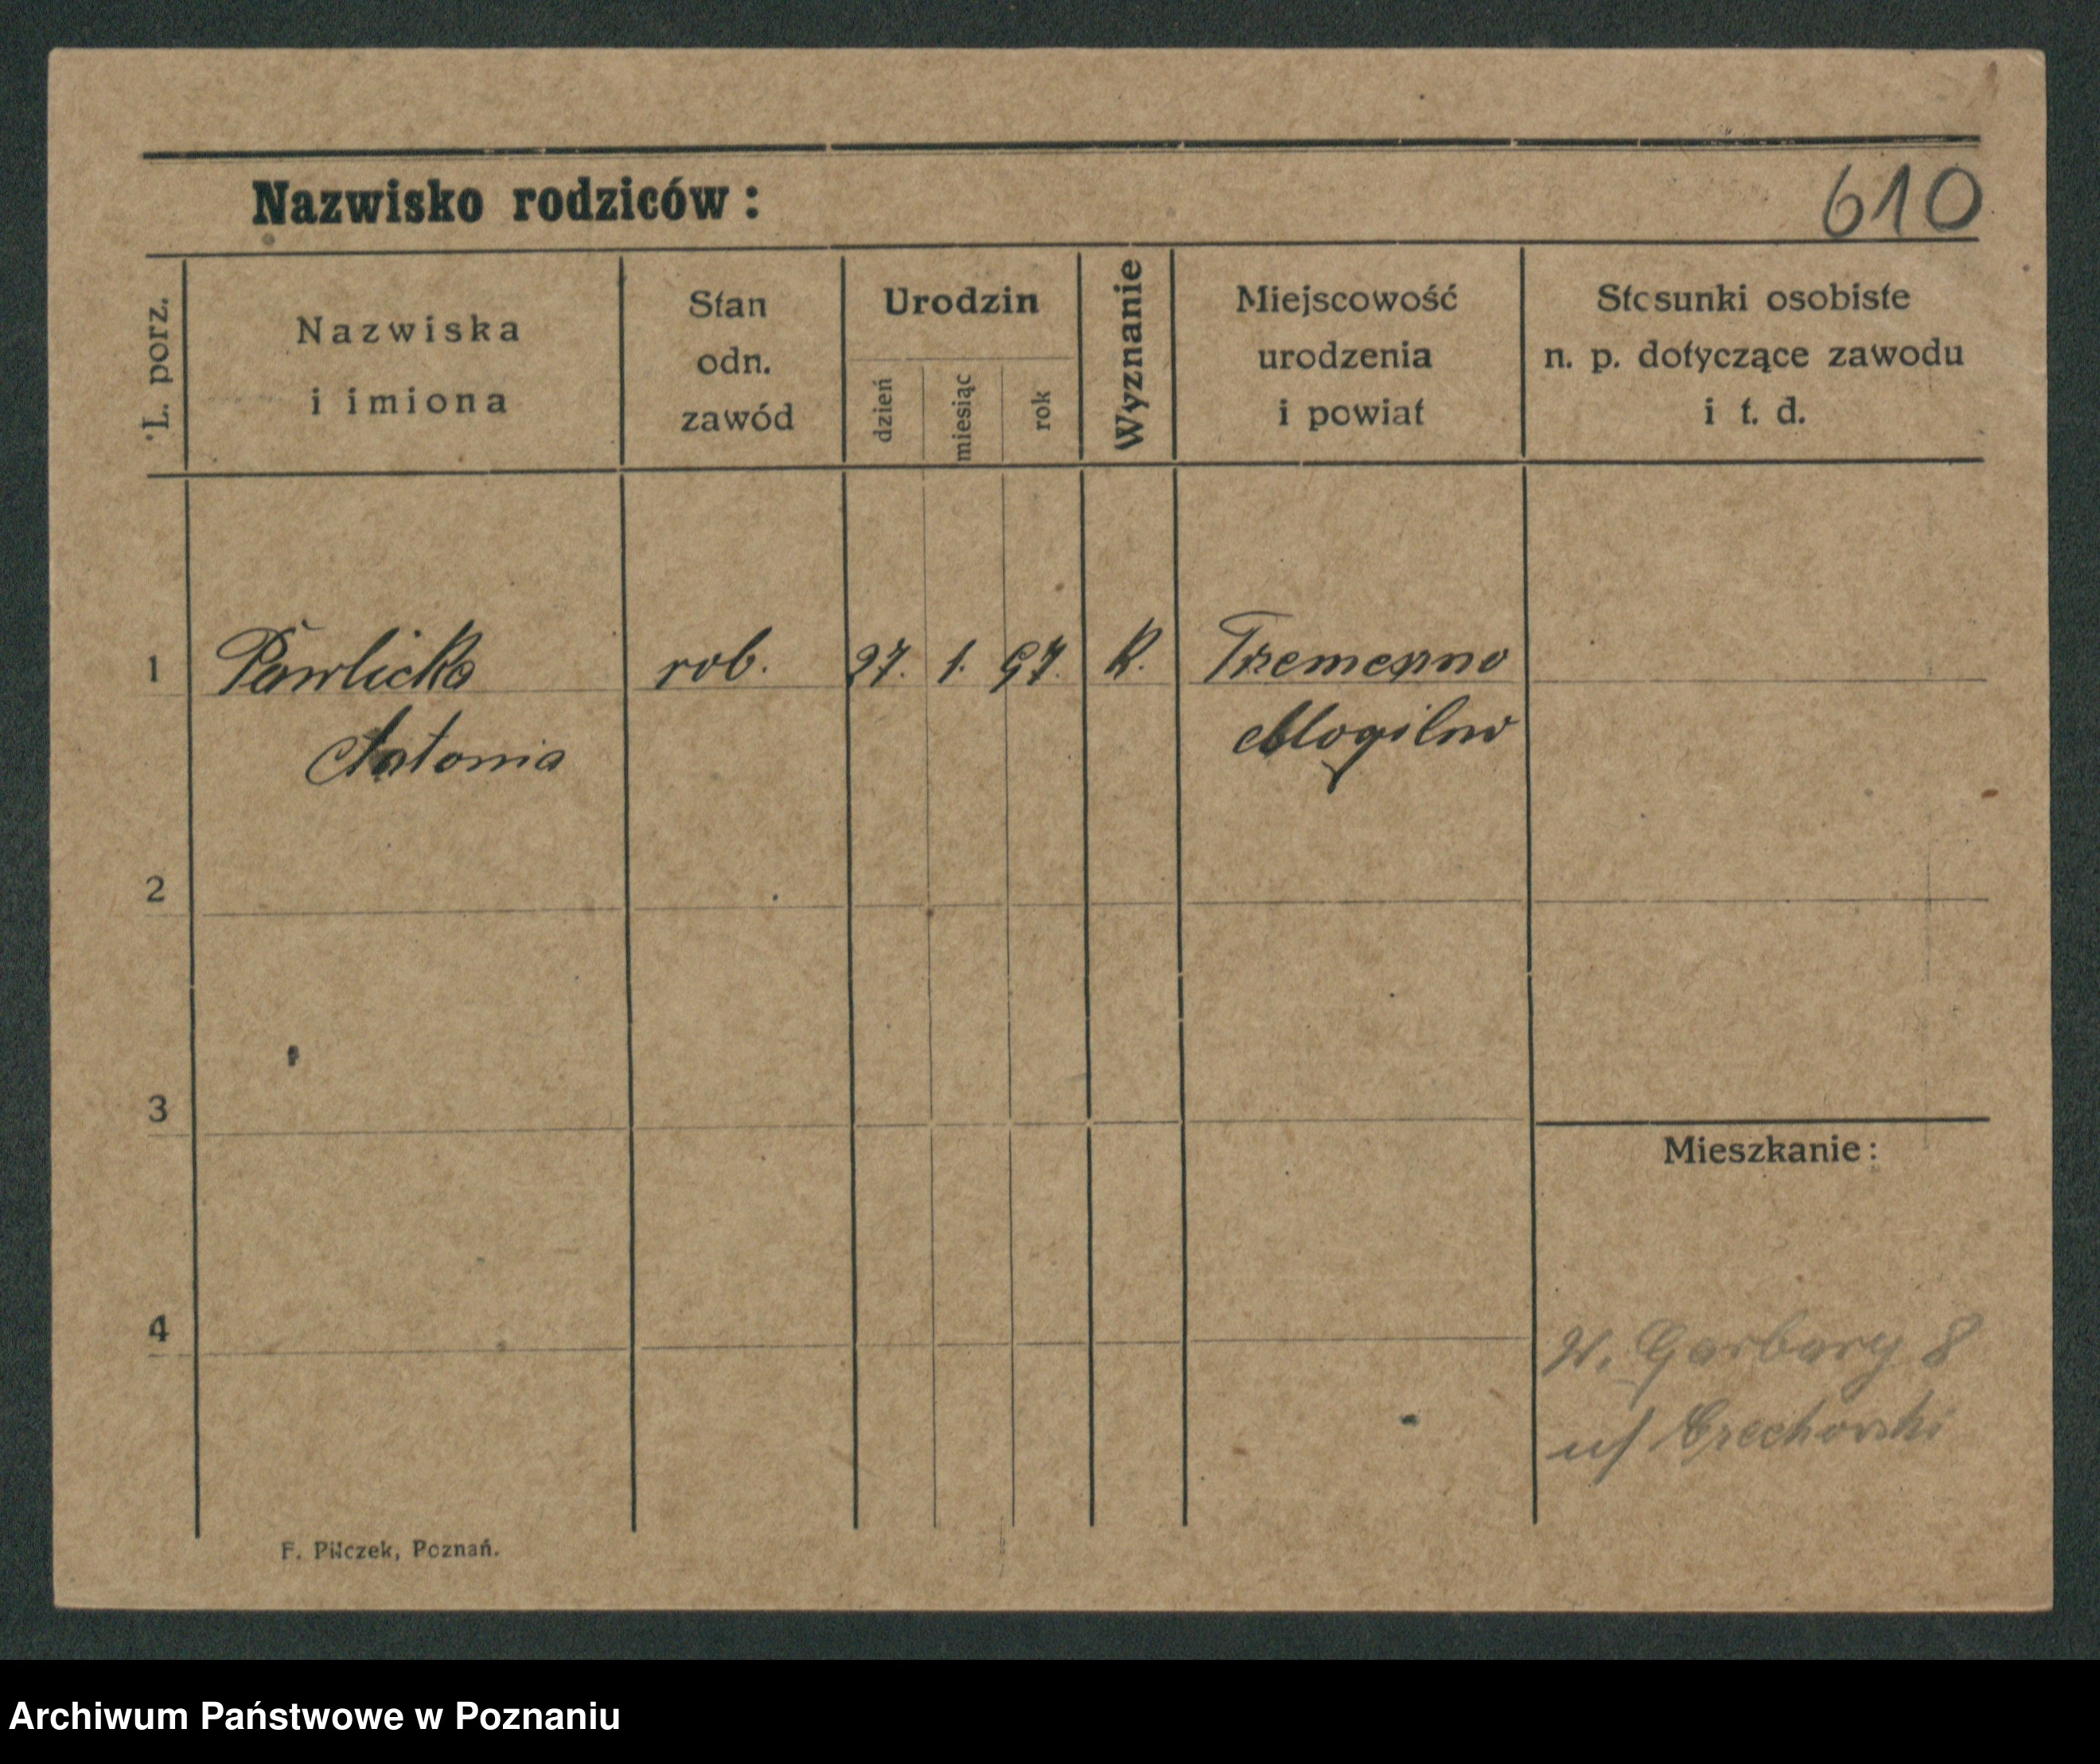 Nazwisko rodziców:
610
L. porz.
Nazwiska
i imiona
Stan
odn.
zawód
Urodzin
dzień
miesiąc
rok
Wyznanie
Miejscowość
urodzenia
i powiat
Stosunki osobiste
n. p. dotyczące zawodu
i t. d.
1 Pawlicka rob. 27. 1. 97. K. Trzemeszno
Antonia Mogilno
2
3
Mieszkanie:
4
W. Garbary 8
F. Pilczek, Poznań.
Archiwum Państwowe w Poznaniu